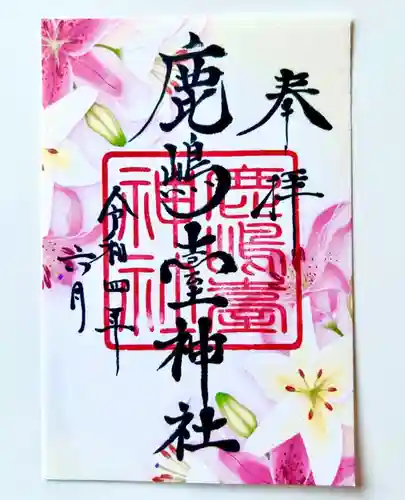 奉拝
鹿嶋臺神社
令和四年
六月
鹿嶋臺
神社